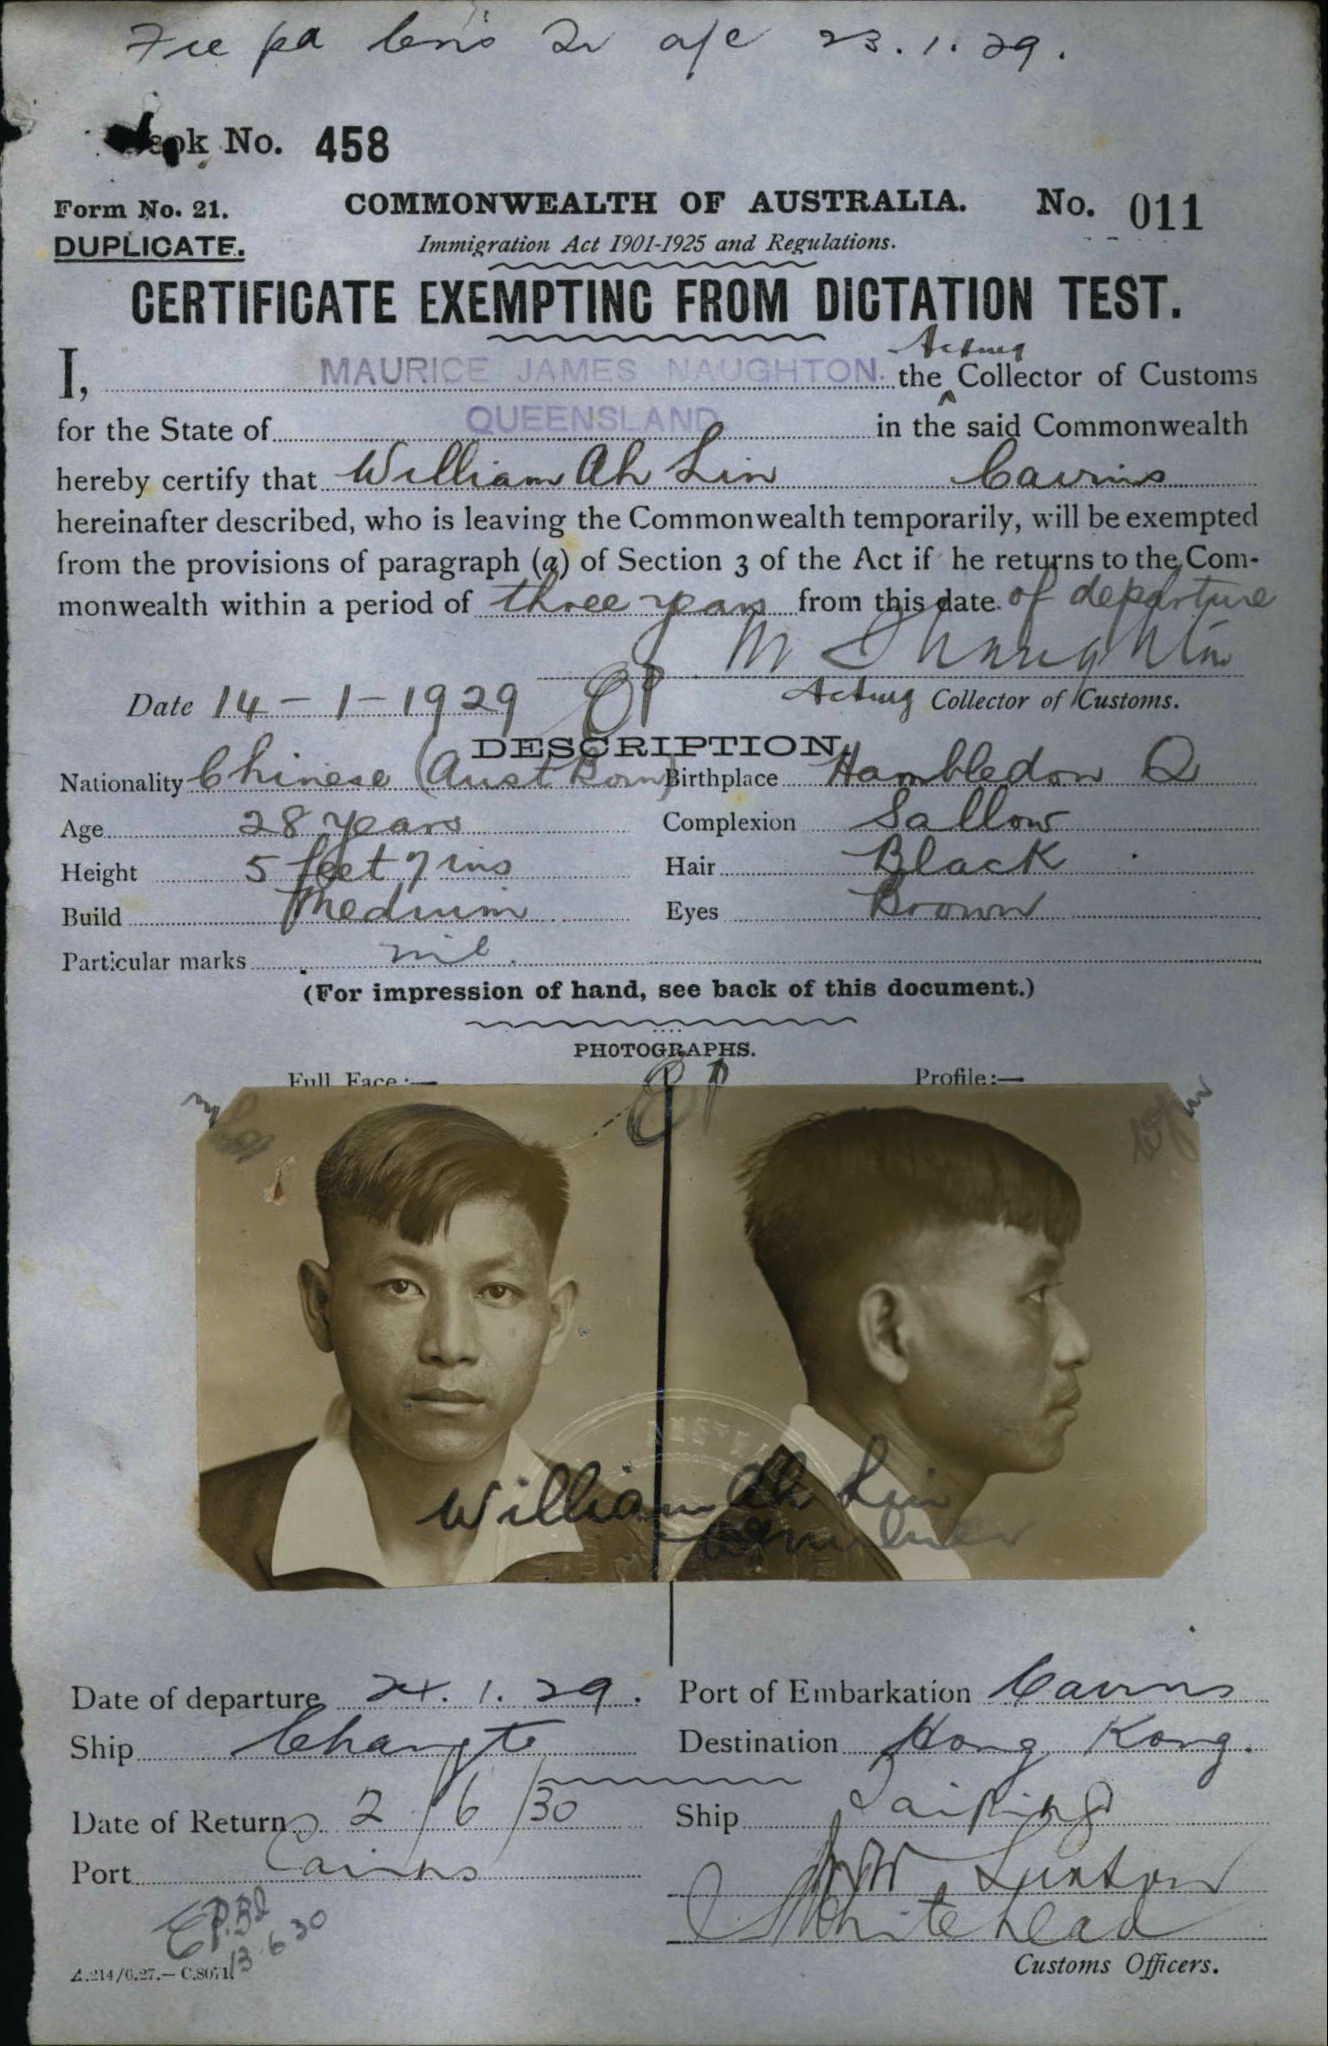 Fee pd 23.1.29.
Book No. 458
Form No. 21. COMMONWEALTH OF AUSTRALIA. No. 011
DUPLICATE. Immigration Act 1901-1925 and Regulations.
CERTIFICATE EXEMPTING FROM DICTATION TEST.
Acting
I, MAURICE JAMES NAUGHTON. the Collector of Customs
for the State of QUEENSLAND in the said Commonwealth
hereby certify that William Ah Lin Cairns
hereinafter described, who is leaving the Commonwealth temporarily, will be exempted
from the provisions of paragraph (a) of Section 3 of the Act if he returns to the Com-
monwealth within a period of three years from this date of departure
M J Naughton
Date 14-1-1929 Acting Collector of Customs.
DESCRIPTION
Nationality Chinese (Aust Born) Birthplace Hambledon Q
Age 28 years Complexion Sallow
Height 5 feet 7 ins Hair Black
Build Medium Eyes Brown
Particular marks nil.
(For impression of hand, see back of this document.)
PHOTOGRAPHS.
Full Face:— Profile:—
William Ah Lin
Date of departure 24.1.29. Port of Embarkation Cairns
Ship Changte Destination Hong Kong.
Date of Return 2/6/30 Ship Taiping
Port Cairns
Whitehead
13.6.30
A.214/6.27.—C.8071. Customs Officers.